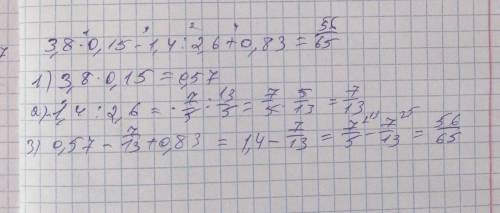 3,8·0,15-1,4:2,6+0,83=56/65
1) 3,8·0,15=0,57
2) 1,4:2,6=7/5:13/5=7/5·5/13=7/13
3) 0,57-7/13+0,83=1,4-7/13=7/5-7/13=56/65